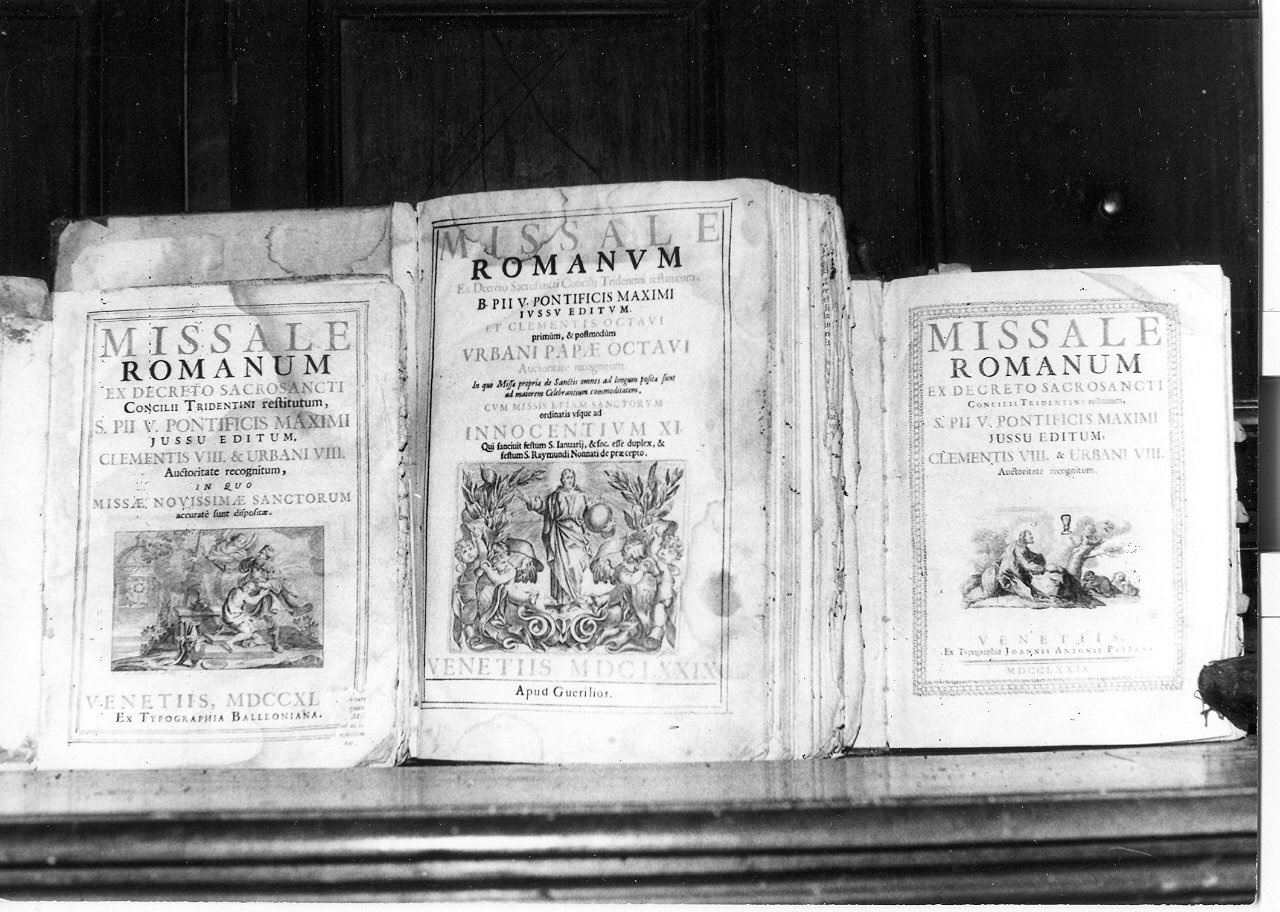 MISSALE
ROMANUM
EX DECRETO SACROSANCTI
CONCILII TRIDENTINI restitutum,
S. PII V. PONTIFICIS MAXIMI
JUSSU EDITUM,
CLEMENTIS VIII. & URBANI VIII.
Auctoritate recognitum,
IN QUO
MISSÆ NOVISSIMÆ SANCTORUM
accuratè sunt dispositæ.
VENETIIS, MDCCXL
EX TYPOGRAPHIA BALLEONIANA.
MISSALE
ROMANVM
Ex Decreto Sacrosancti Concilij Tridentini restitutum,
B. PII V. PONTIFICIS MAXIMI
IVSSV EDITVM.
ET CLEMENTIS OCTAVI
primùm, & postmodùm
VRBANI PAPÆ OCTAVI
Auctoritate recognitum.
In quo Missæ propriæ de Sanctis omnes ad longum positæ sunt
ad maiorem Celebrantium commoditatem.
CVM MISSIS ETIAM SANCTORVM
ordinatis vsque ad
INNOCENTIVM XI.
Qui sanciuit festum S. Ianuarij, & soc. esse duplex, &
festum S. Raymundi Nonnati de præcepto.
VENETIIS. MDCLXXIX
Apud Guerilios.
MISSALE
ROMANUM
EX DECRETO SACROSANCTI
CONCILII TRIDENTINI restitutum,
S. PII V. PONTIFICIS MAXIMI
JUSSU EDITUM,
CLEMENTIS VIII. & URBANI VIII.
Auctoritate recognitum.
VENETIIS,
Ex Typographia JOANNIS ANTONII PEZZANA.
MDCCLXXIX